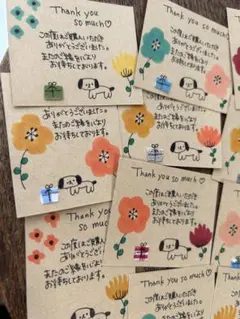 Thank you
so much♡
この度はご購入いただき
ありがとうございました。
またのご縁を心より
お待ちしております。
Thank you
so much♡
この度はご購入いただき
ありがとうございました。
またのご縁を心より
お待ちしております。
ありがとうございました。
またのご縁を心より
お待ちしております。
Thank you
so much♡
この度はご購入いただき
ありがとうございました
またのご縁を心より
お待ちしております。
Thank you
so much
この度はご購入いただき
ありがとうございました
またのご縁を心より
お待ちしております。
Thank you
so much♡
この度はご購入いただき
ありがとうございました。
またのご縁を心より
お待ちしております。
Thank you
so much♡
この度はご購入いただき
ありがとうございました
またのご縁を心より
お待ちしております。